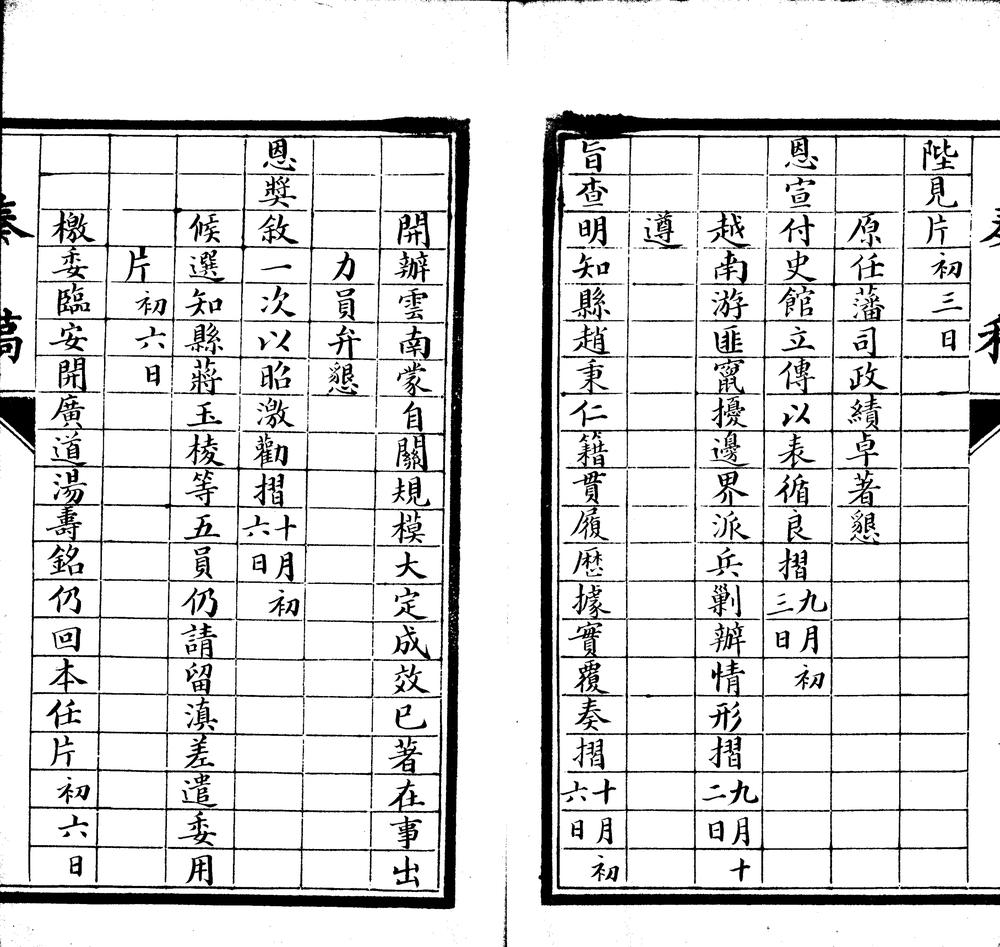 陛見片初三日
原任藩司政績卓著懇
恩宣付史館立傳以表循良摺九月初三日
越南游匪竄擾邊界派兵剿辦情形摺九月十二日
遵
旨查明知縣趙秉仁籍貫履歷據實覆奏摺十月初六日
開辦雲南蒙自關規模大定成效已著在事出
力員弁懇
恩獎敘一次以昭激勸摺十月初六日
候選知縣蔣玉棱等五員仍請留滇差遣委用
片初六日
檄委臨安開廣道湯壽銘仍回本任片初六日
奏稿